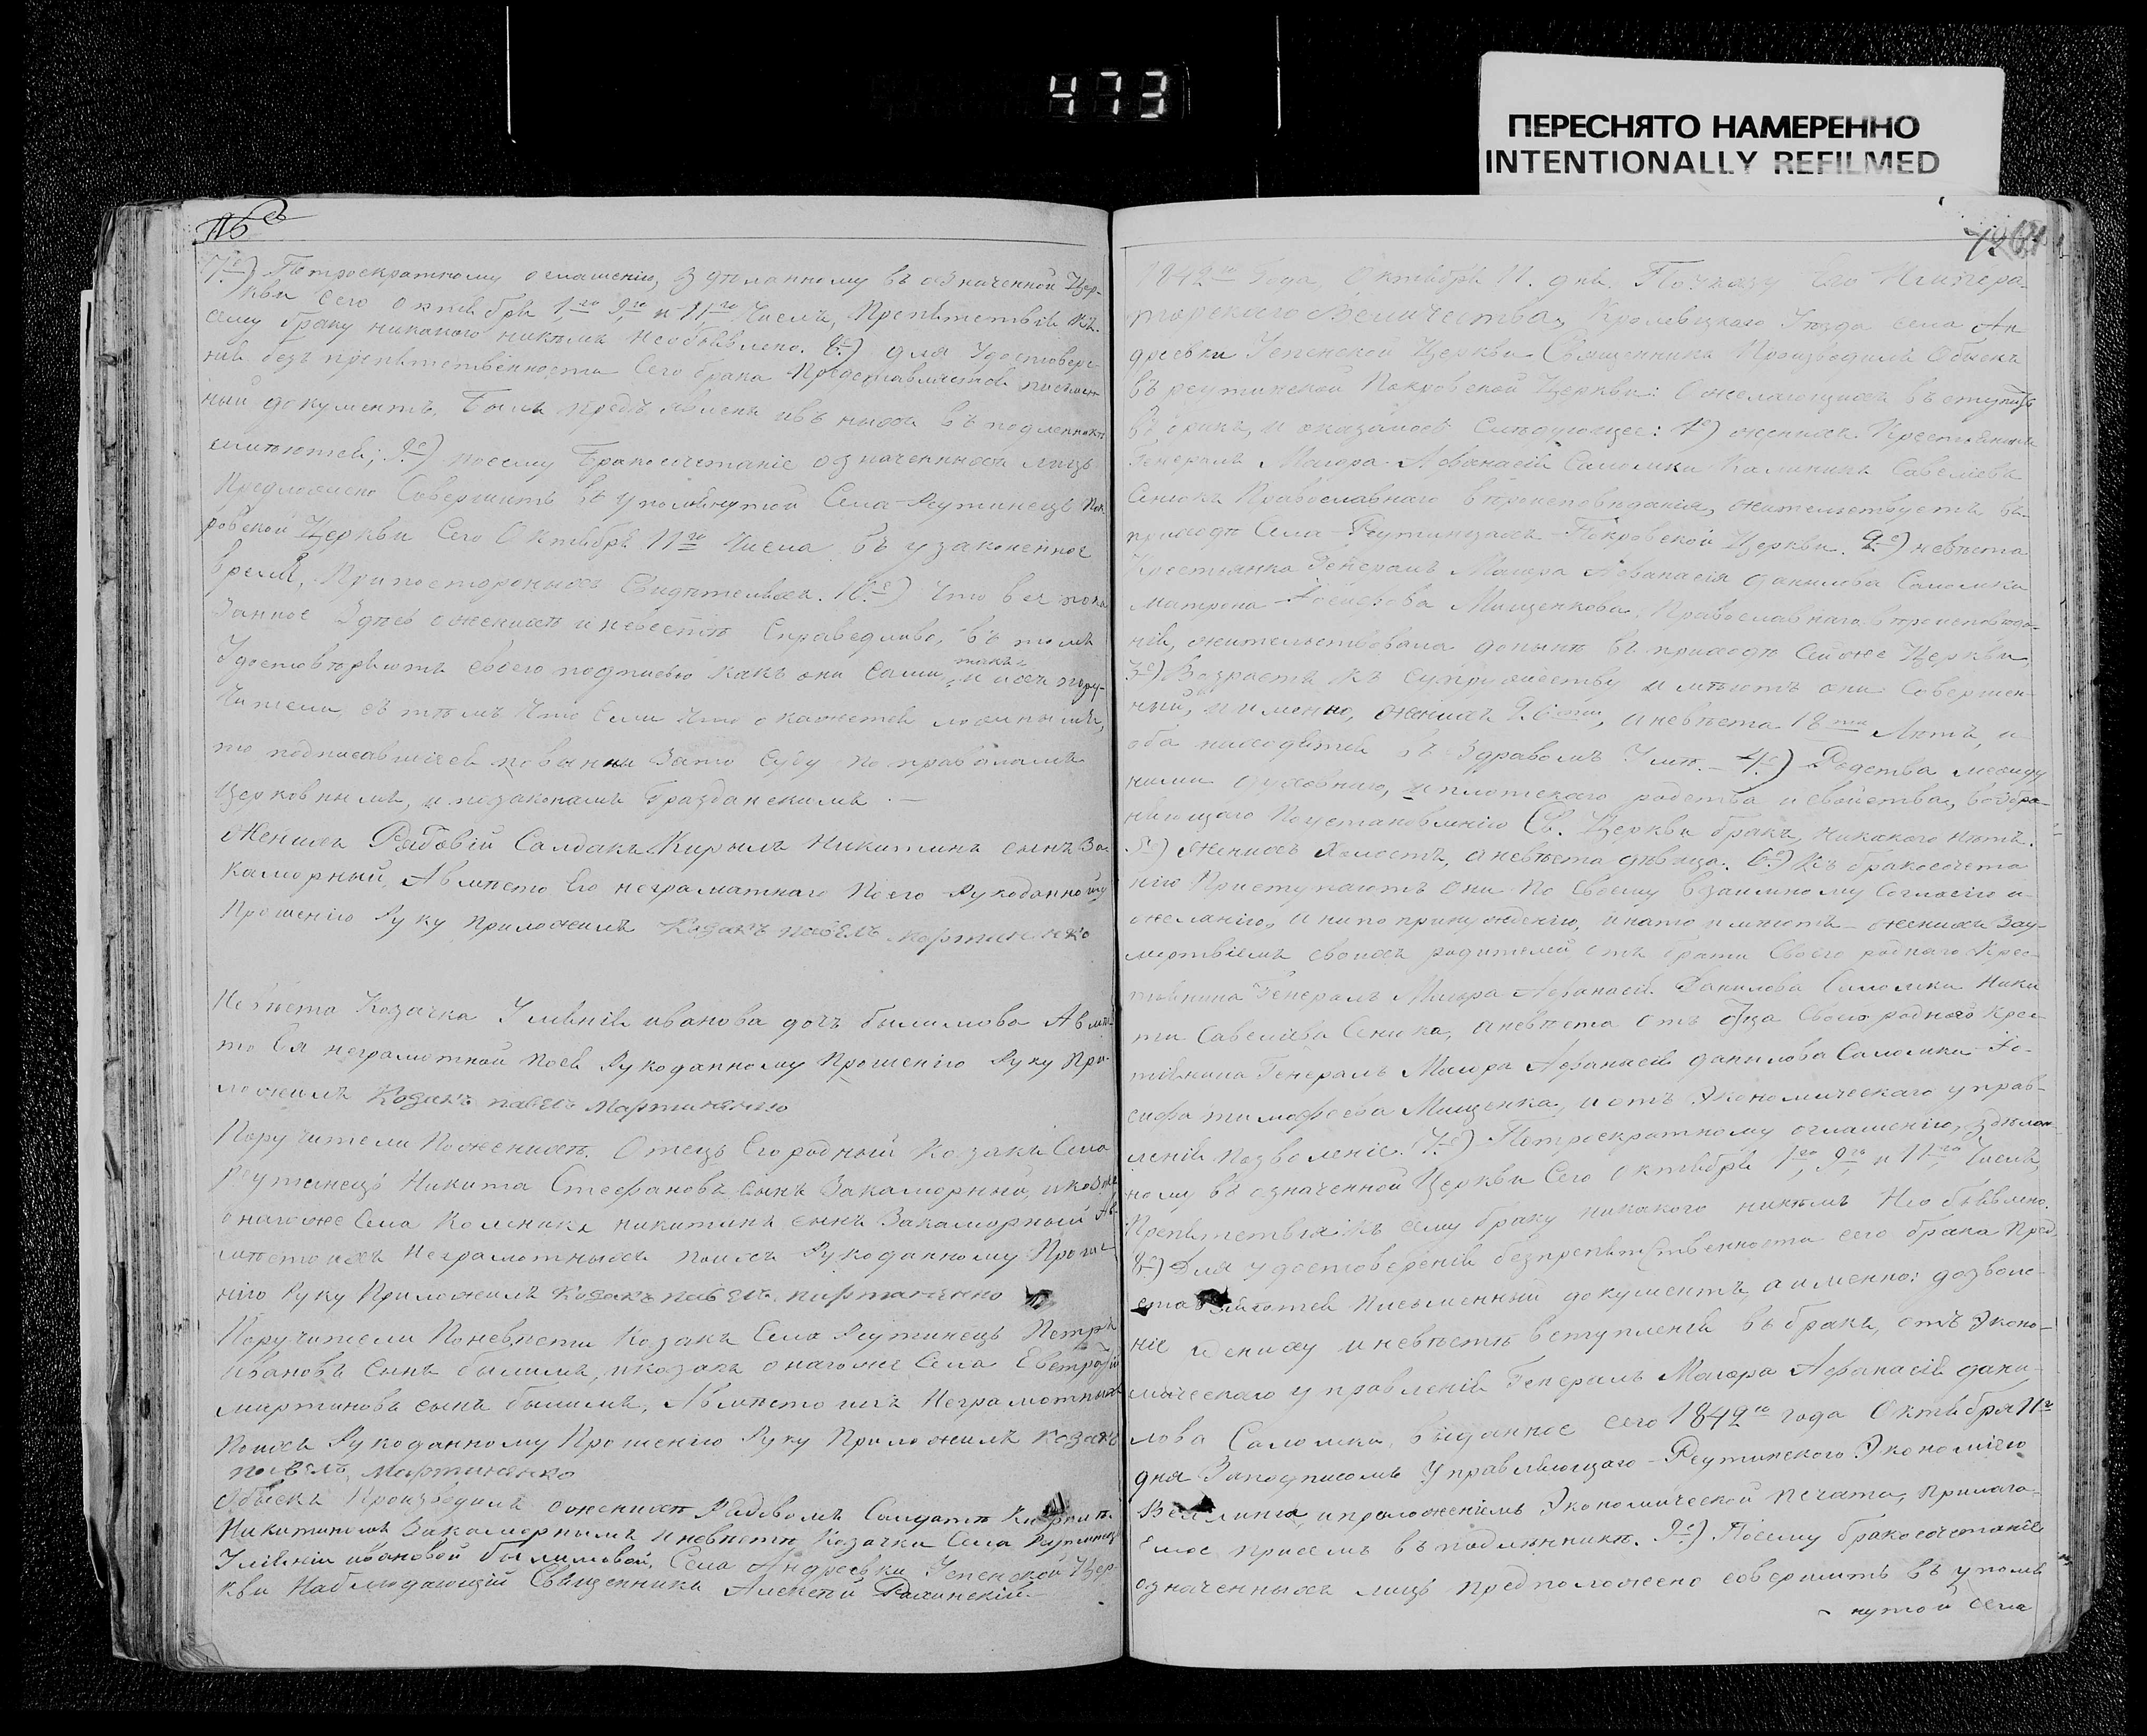 473
ПЕРЕСНЯТО НАМЕРЕННО
INTENTIONALLY REFILMED
7е) Потроекратному оглашенію, зделанному въ означенной Цер-
кви сего октября 1го 9го и 11го Числъ, Препятствія къ
сему браку никакого никемъ необъявлено. 8е) для Удостовере-
нія безъпрепятственности Сего брака Представляется письмен-
ный документъ,
имѣются; 9е) посему Бракосочетаніе означенныхъ лицъ
Предложено Совершить въ упомянутой Села Реутинецъ Пок
ровской Церкви Сего Октября 11го Числа въ узаконенное
время, Припостороныхъ Свидѣтеляхъ. 10е) Что все пока
занное Здѣсь оженихѣ иневестѣ Справедливо, въ томъ
Удостовѣряютъ своею подписью какъ они Сами, такъ и ихъ пору-
чители, съ тѣмъ, Что Если Что окажется ложнымъ,
то подписавшіеся повинны Зато Суду по правиламъ
Церковнымъ, и позаконамъ Гражданскимъ .—
Женихъ Рядовій Салдатъ Кирылъ Никитинъ сынъ За
каморный, Авмѣсто Его неграматнаго Поего Рукоданному
Прошенію Руку приложилъ Козакъ павелъ мартиненко
Невѣста Козачка Уліянія иванова дочъ былимова Авмѣс
то Ея неграмотной Поея Рукоданному Прошенію Руку При
ложилъ Козакъ павелъ Мартиненко
Поручители Поженихѣ Отецъ Его родный Козакъ Села
Реутинецъ Никита Стефановъ сынъ Закаморный, икозакъ
онагоже Села Коленикъ никитинъ сынъ Закаморный Ав-
мѣстоихъ Неграмотныхъ поихъ Рукоданному Проше
нію Руку Приложилъ Козакъ павелъ мартиненко
Поручители Поневѣсти Козакъ Села Реутинецъ Петръ
Ивановъ Сынъ былимъ, икозакъ онагоже Села Евстрафій
мартиновъ сынъ былимъ, Авмѣсто ихъ Неграмотныхъ
Поихъ Рукоданному Прошенію Руку Приложилъ козакъ
павелъ Мартиненко
Обыскъ Производилъ оженихѣ Рядовомъ Солдатѣ Кирилѣ
Никитиномъ Закаморнымъ иневѣстѣ Козачки Села Реутинецъ
Уліяніи ивановой былимовой, Села Андреевки Успенской Цер-
кви Наблюдающій Священникъ Алексей
1849го Года, Октября 11. дня. Поуказу Его Импера-
торскаго Величества, Кролевецкаго Уезда села Ан
дреевки Успенской Церкви Священникъ Производилъ Обыскъ
въ реутинской Покровской Церкви: Ожелающихъ вступить
въ бракъ, и оказалось Слѣдующее: 1е) женихъ Крестьянинъ
Генералъ Маіора Афанасія Саломки Калиникъ Савелиевъ
Сенюкъ Православнаго вѣроисповѣданія, жительствуетъ въ
приходѣ Села Реутинцахъ Покровской Церкви. 2е) невѣста
Крестьянка Генералъ Маіора Афанасія данилова Саломки
матрона Мищенкова, Православнаго вѣроисповѣда-
нія, жительствовала доныне въ приходѣ Сейже Церкви,
3е) Возрастъ къ Супружеству имѣютъ они Совершен-
ный, и именно, женихъ 26ти, аневѣста 18ти Лѣтъ, и
оба находятся въ Здравомъ Умѣ.— 4е) Родства между
ними духовнаго, и плотскаго родства исвойства, возбра-
няющаго Поустановленію Св. Церкви бракъ, никакого нѣтъ.
5е) Женихъ Холостъ, аневѣста дѣвица. 6е) Къ бракосочета
нію Приступаютъ они По Своему взаимному Согласію и
желанію, анипо принужденію, инато имѣютъ женихъ Зау-
мертвіемъ своихъ родителей отъ брата Своего роднаго Крес-
тьянина Генералъ Маіора Афанасія Данилова Саломки Ники
ти Савелиева Сенюка, аневѣста Отъ Отца Своего роднаго крес-
тьянина Генералъ Маіора Афанасія данилова Саломки Іо-
сифа тимофеева Мищенка, и отъ Экономическаго управ-
ленія Позволеніе. 7е) Потроекратному оглашенію, зделан-
ному въ означенной Церкви Сего Октября 1го, 9го и 11го Числъ,
Препятствія къ сему браку никакого никѣмъ Необъявлено.
8е) Для удостоверенія безпрепятственности сего брака Пред-
ставляются Письменный документъ аименно: дозволе-
ніе жениху иневѣстѣ вступленія въ бракъ, отъ Эконо-
мическаго управленія Генералъ Маіора Афанасія дани-
лова Саломки, выданное сего 1849го года Октября 11го
дня Заподписомъ Управляющаго Реутинскою Экономіею
иприложеніемъ Экономической печати, прилага-
емое присемъ въ подлѣнникѣ. 9е) Посему бракосочетаніе
означенныхъ лицъ предположено совершить въ упомя
нутой села